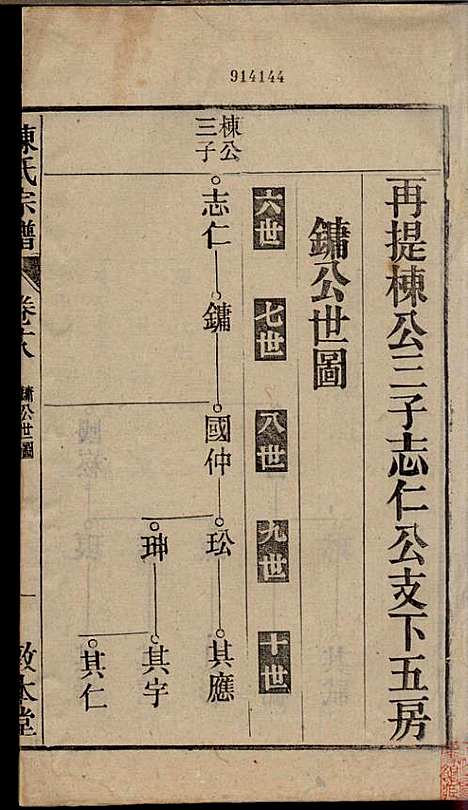 914144
再提棟公三子志仁公支下五房
鏞公世圖
六世 七世 八世 九世 十世
棟公
三子
志仁 鏞 國仲 玜 其應
珅 其宇
其仁
陳氏宗譜 卷十八 鏞公世圖 一 敦本堂